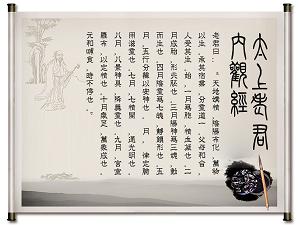 太上老君
內觀經
老君曰：。天地媾精，陰陽布化，萬物
以生。承其宿業，分靈道一。父母和合，
人受其生。始，一月爲胞，精血凝也。二
月成胎，形兆胚也。三月陽神爲三魂，動
而生也。四月陰靈爲七魄，靜鎮形也。五
月，五行分藏以安神也。六月，六律定腑
用滋靈也。七月，七精開竅，通光明也。
八月，八景神具，降真靈也。九月，宮室
羅布，以定精也。十月歲足，萬象成也。
元和哺食，時不停也。